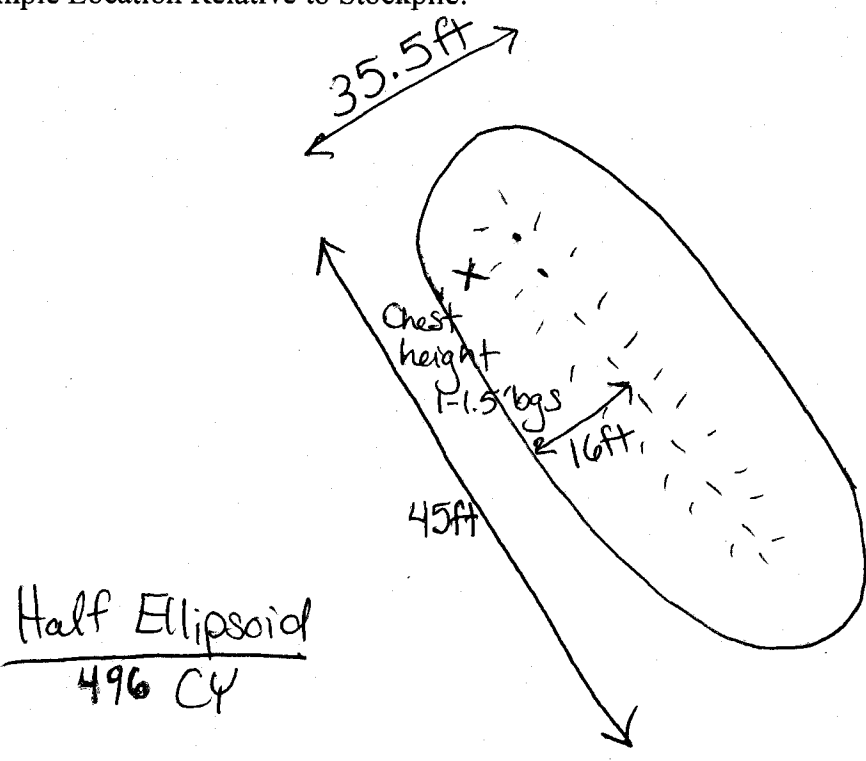 mple Location Relative to Stockpile:
35.5ft
Chest
height
1-1.5' bgs
16ft
45ft
Half Ellipsoid
496 CY